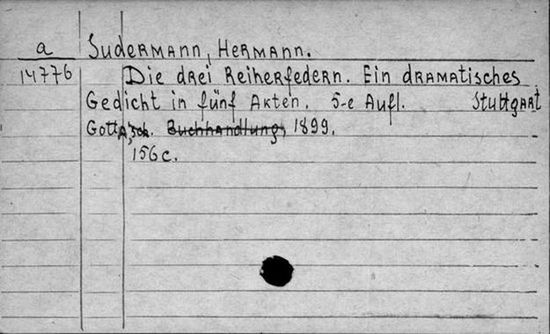 a Sudermann, Hermann.
14776 Die drei Reiherfedern. Ein dramatisches
Gedicht in fünf Akten. 5-e Aufl. Stuttgart
Buchhandlung, 1899.
156 c.